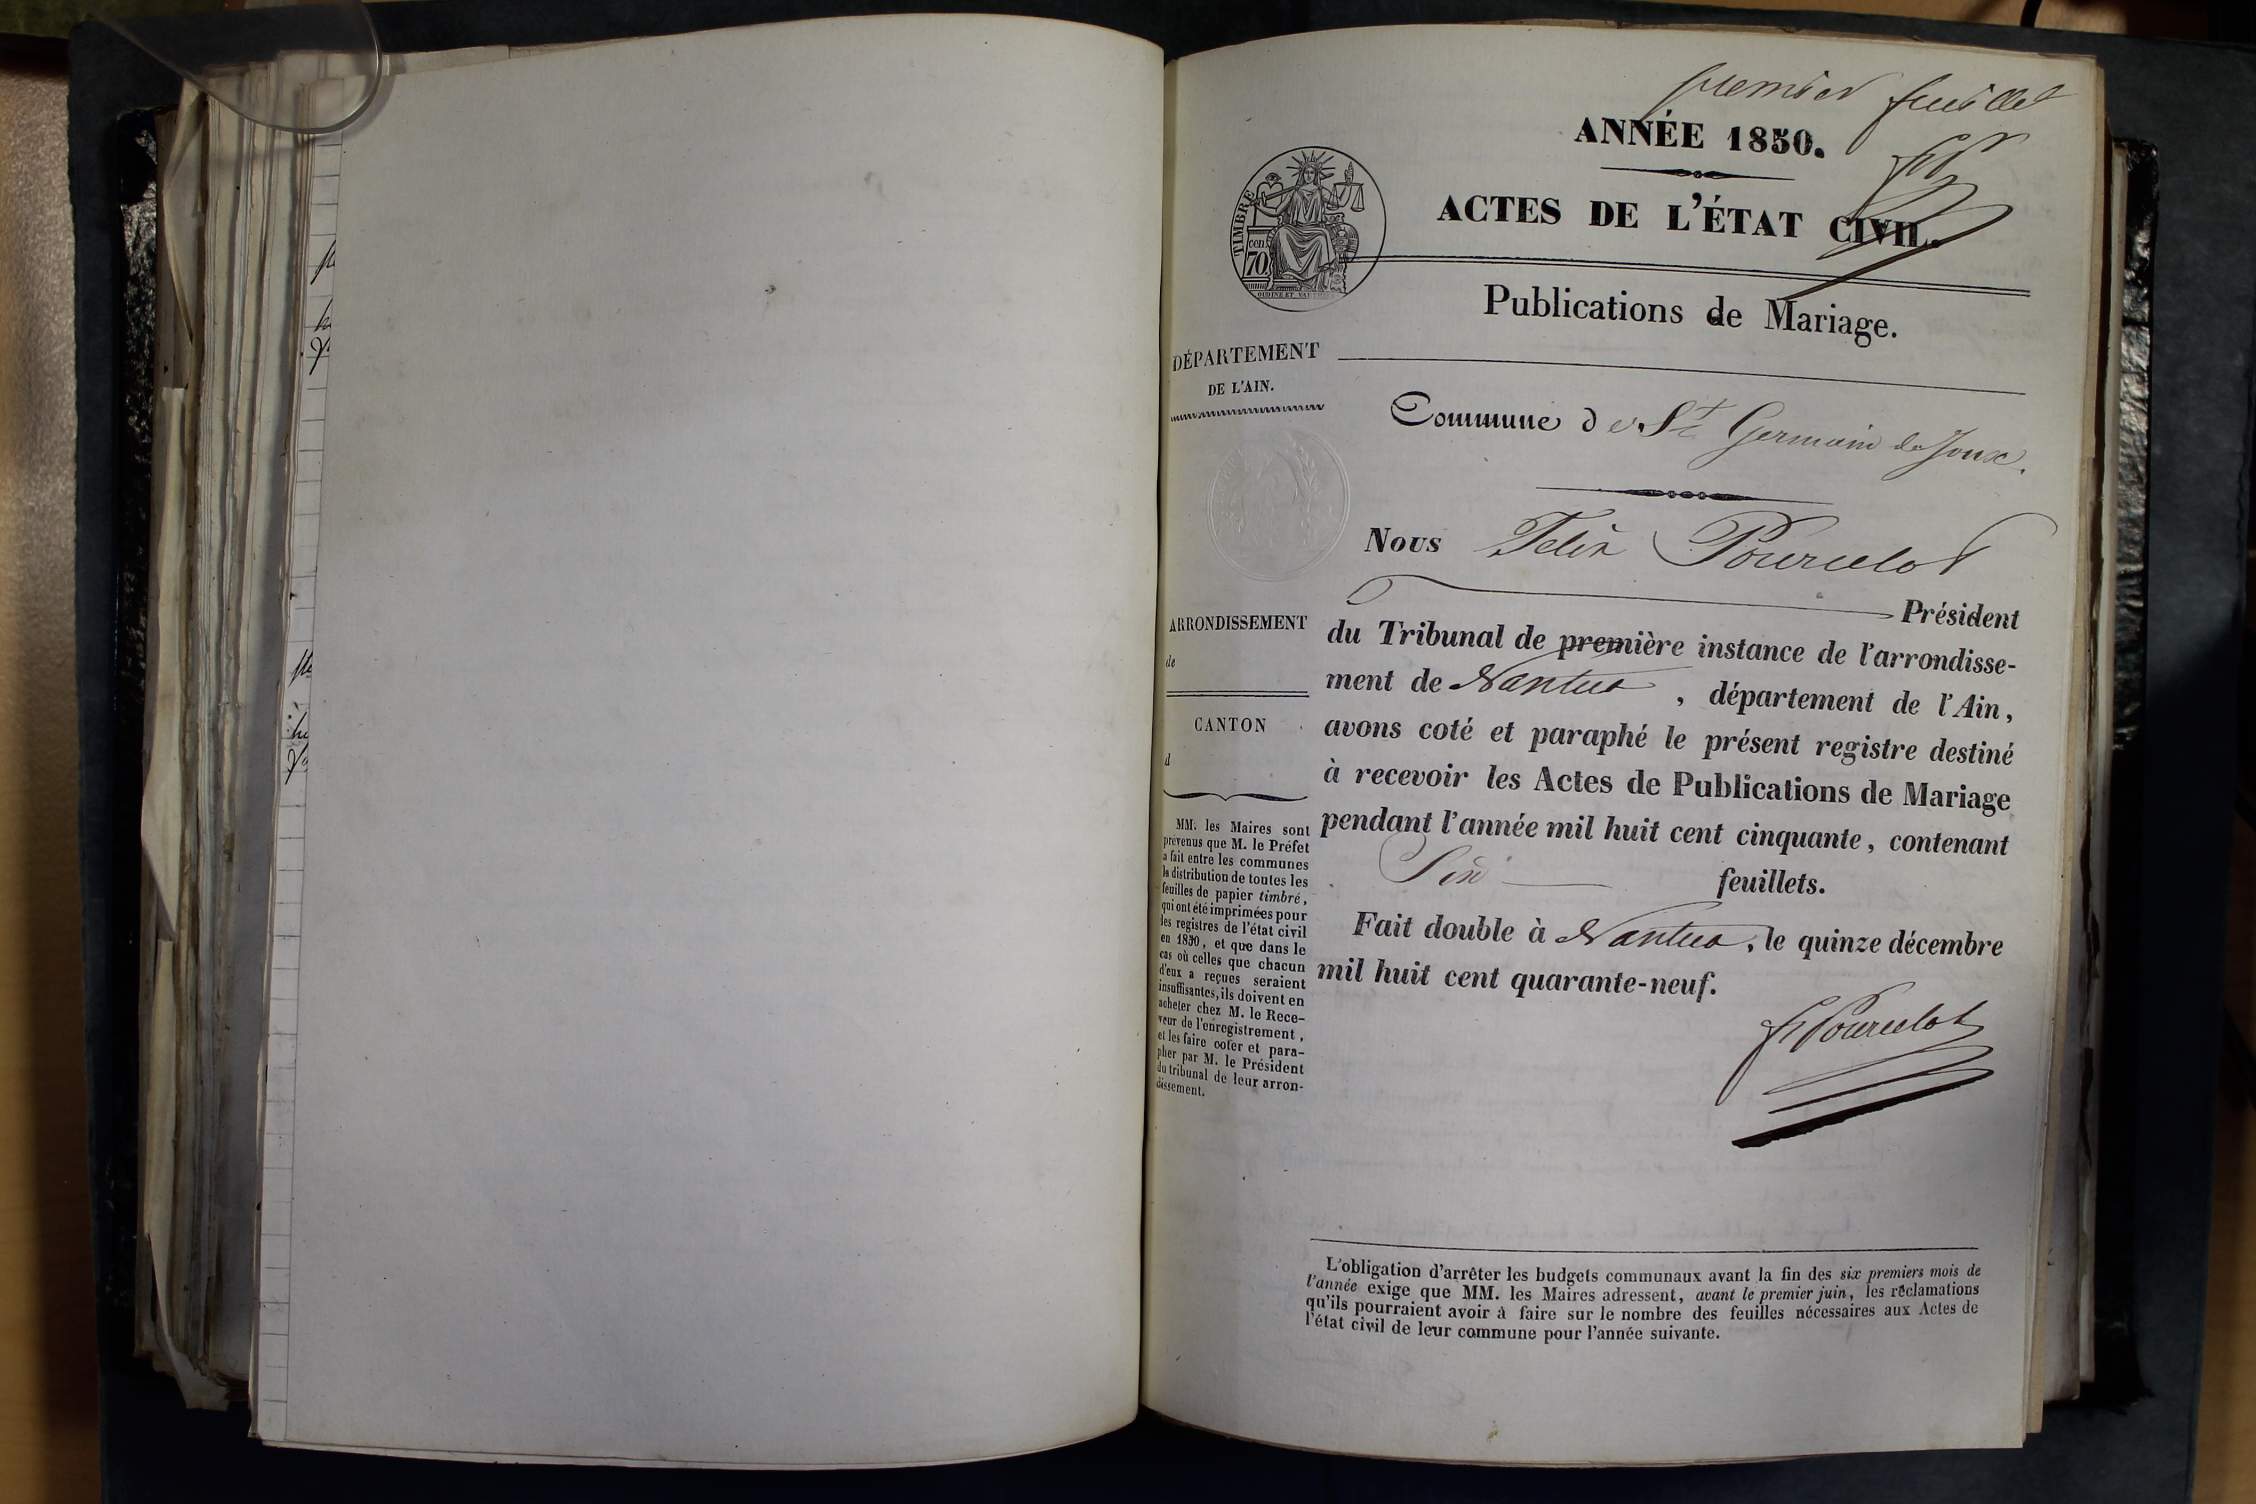 premier feuillet
ANNÉE 1850.
ACTES DE L'ÉTAT CIVIL.
TIMBRE
cen.
70
OUDINÉ ET VAUTHIER
Publications de Mariage.
DÉPARTEMENT
DE L'AIN.
Commune de St Germain de Joux.
Nous Felix Pourcelot
Président
du Tribunal de première instance de l'arrondisse-
ment de Nantua, département de l'Ain,
avons coté et paraphé le présent registre destiné
à recevoir les Actes de Publications de Mariage
pendant l'année mil huit cent cinquante, contenant
Six feuillets.
Fait double à Nantua, le quinze décembre
mil huit cent quarante-neuf.
F Pourcelot
ARRONDISSEMENT
de
CANTON
d
MM. les Maires sont
prévenus que M. le Préfet
a fait entre les communes
la distribution de toutes les
feuilles de papier timbré,
qui ont été imprimées pour
les registres de l'état civil
en 1850, et que dans le
cas où celles que chacun
d'eux a reçues seraient
insuffisantes, ils doivent en
acheter chez M. le Rece-
veur de l'enregistrement,
et les faire coter et para-
pher par M. le Président
du tribunal de leur arron-
dissement.
L'obligation d'arrêter les budgets communaux avant la fin des six premiers mois de
l'année exige que MM. les Maires adressent, avant le premier juin, les réclamations
qu'ils pourraient avoir à faire sur le nombre des feuilles nécessaires aux Actes de
l'état civil de leur commune pour l'année suivante.